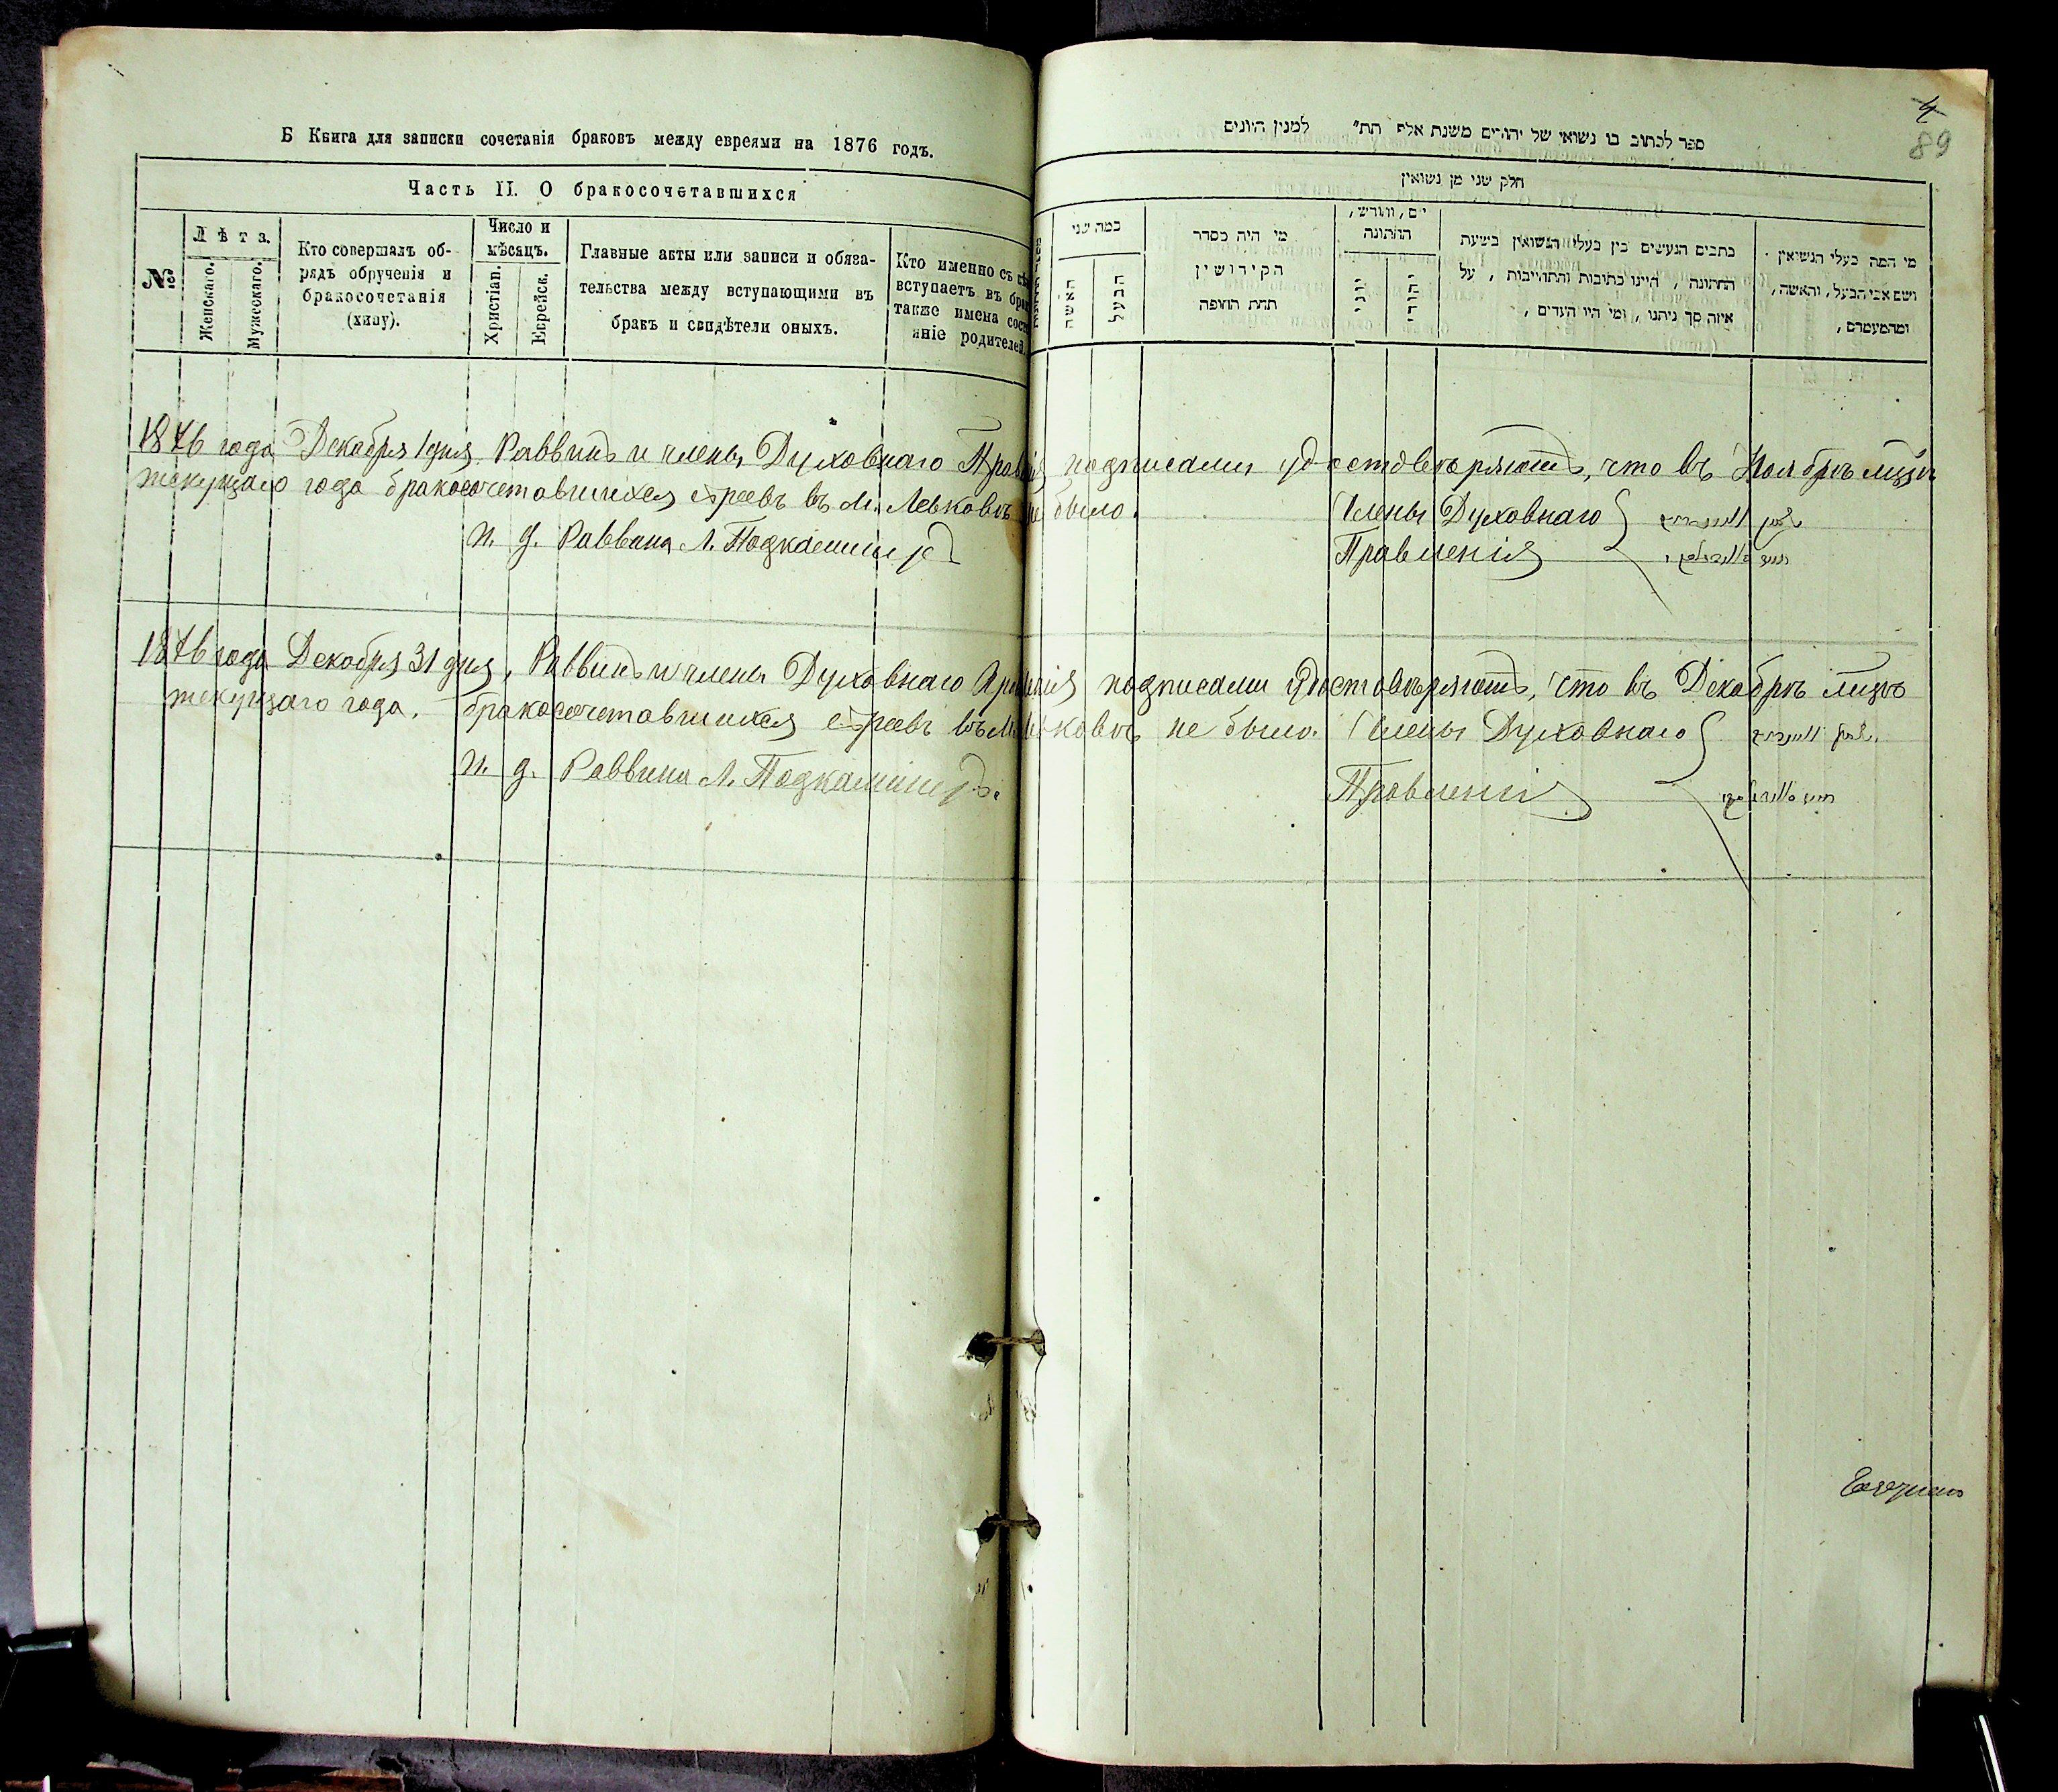 Б Книга для записки сочетанія браковъ между евреями на 1876 годъ.
Часть II. О бракосочетавшихся
№
Лѣта.
Женскаго.
Мужескаго.
Кто совершалъ об-
рядъ обрученія и
бракосочетанія
(хипу).
Число и
мѣсяцъ.
Христіан.
Еврейск.
Главные акты или записи и обяза-
тельства между вступающими въ
бракъ и свидѣтели оныхъ.
Кто именно съ
вступаетъ въ бра
также имена сос
яніе родителей.
4
89
ספר לכתוב בו נשואי של יהודים משנת אלף תת״ למנין היונים
חלק שני מן נשואין
כמה שני
האשה
הבעל
מי היה כסדר
הקידושין
תחת החופה
יום, וחודש,
החתונה
יוני
יהודי
כתבים הנעשים בין בעלי הנשואין בשעת
החתונה, היינו כתובות והתחייבות, על
איזה סך ניתנו, ומי היו העדים,
מי המה בעלי הנשואין
ושם אבי הבעל, והאשה,
ומהמעמדם,
1876 года Декабря 1 дня Раввинъ и члены Духовнаго Правлія подписами удостовѣряютъ, что въ Ноябрѣ мцѣ
текущаго года бракосочетавшихся евреевъ въ м. Левковѣ не было.
Члены Духовнаго
И. д. Раввина Л. Подкаминеръ
Правленія
1876 года Декабря 31 дня, Раввинъ и члены Духовнаго Правленія подписами удостовѣряютъ, что въ Декабрѣ мцѣ
текущаго года, бракосочетавшихся евреевъ въ м. Левковѣ не было. Члены Духовнаго
И. д. Раввина Л. Подкаминеръ.
Правленія